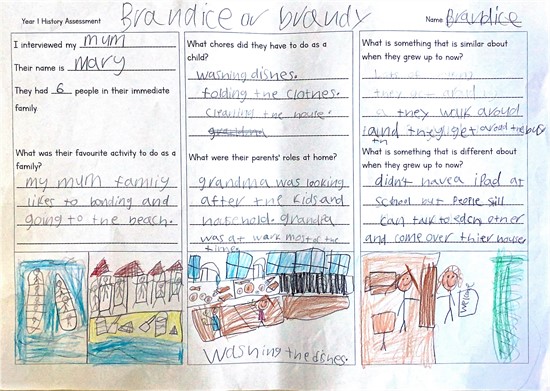 Year 1 History Assessment
Brandice or brandy
Name Brandice
I interviewed my mum
Their name is mary
They had 6 people in their immediate
family.
What was their favourite activity to do as a
family?
my mum family
likes to bonding and
going to the beach.
What chores did they have to do as a
child?
washing dishes.
folding the clothes.
cleaning the house.
What were their parents' roles at home?
grandma was looking
after the kids and
household. grandpa
was at work most of the
time.
What is something that is similar about
when they grew up to now?
they walk around
and they get around the bus
What is something that is different about
when they grew up to now?
didn't have a iPad at
school but People still
can talk to each other
and come over thier house
washing the dishes.